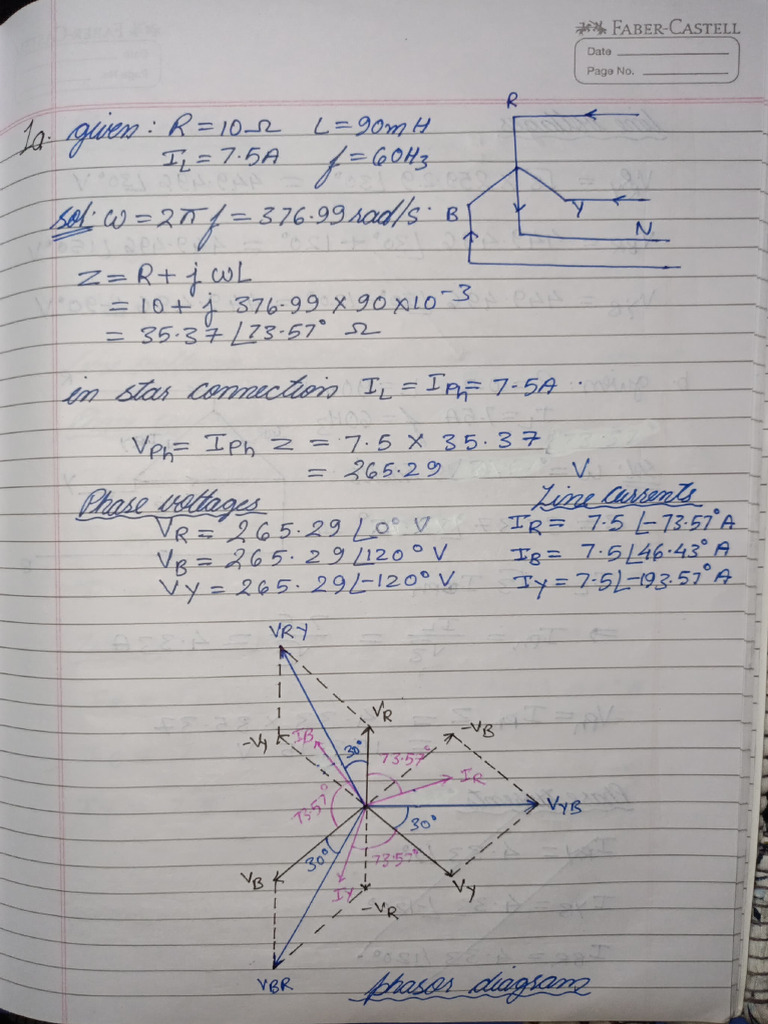 FABER-CASTELL
Date
Page No.
1a. given: R = 10Ω L = 90mH
I_L = 7.5A f = 60Hz
sol: ω = 2πf = 376.99 rad/s.
R
B
Y
N
Z = R + jωL
= 10 + j 376.99 × 90 × 10⁻³
= 35.37 ∠73.57° Ω
in star connection I_L = I_Ph = 7.5A.
V_Ph = I_Ph Z = 7.5 × 35.37
= 265.29 V
Phase voltages
V_R = 265.29 ∠0° V
V_B = 265.29 ∠120° V
V_Y = 265.29 ∠-120° V
Line Currents
I_R = 7.5 ∠-73.57° A
I_B = 7.5 ∠46.43° A
I_Y = 7.5 ∠-193.57° A
V_RY
V_R
-V_Y
I_B
30°
73.57°
-V_B
I_R
73.57°
V_YB
30°
30°
73.57°
V_B
I_Y
-V_R
V_Y
V_BR
phasor diagram